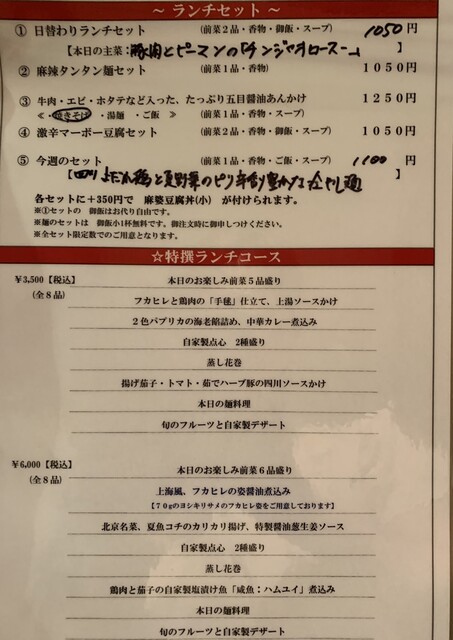 ~ ランチセット ~
① 日替わりランチセット (前菜2品・香物・御飯・スープ) 1050円
【本日の主菜：豚肉とピーマンの「チンジャオロースー」】
② 麻辣タンタン麺セット (前菜1品・香物) 1050円
③ 牛肉・エビ・ホタテなど入った、たっぷり五目醤油あんかけ 1250円
≪・焼きそば ・湯麺 ・ご飯 ≫ (前菜1品・香物・スープ)
④ 激辛マーボー豆腐セット (前菜1品・香物・御飯・スープ) 1050円
⑤ 今週のセット (前菜1品・香物・スープ) 1100円
【四川 よだれ鶏と夏野菜のピリ辛香り豊かな冷やし麺】
各セットに+350円で 麻婆豆腐丼(小) が付けられます。
※①セットの 御飯はお代り自由です。
※麺のセットは 御飯小1杯無料です。御注文時に御申しつけください。
※全セット限定数でのご用意となります。
☆特撰ランチコース
¥3,500【税込】 本日のお楽しみ前菜5品盛り
(全8品) フカヒレと鶏肉の「手毬」仕立て、上湯ソースかけ
2色パプリカの海老餡詰め、中華カレー煮込み
自家製点心 2種盛り
蒸し花巻
揚げ茄子・トマト・茹でハーブ豚の四川ソースかけ
本日の麺料理
旬のフルーツと自家製デザート
¥6,000【税込】 本日のお楽しみ前菜6品盛り
(全8品) 上海風、フカヒレの姿醤油煮込み
【70gのヨシキリサメのフカヒレ姿をご用意しております】
北京名菜、夏魚コチのカリカリ揚げ、特製醤油葱生姜ソース
自家製点心 2種盛り
蒸し花巻
鶏肉と茄子の自家製塩漬け魚「咸魚：ハムユイ」煮込み
本日の麺料理
旬のフルーツと自家製デザート